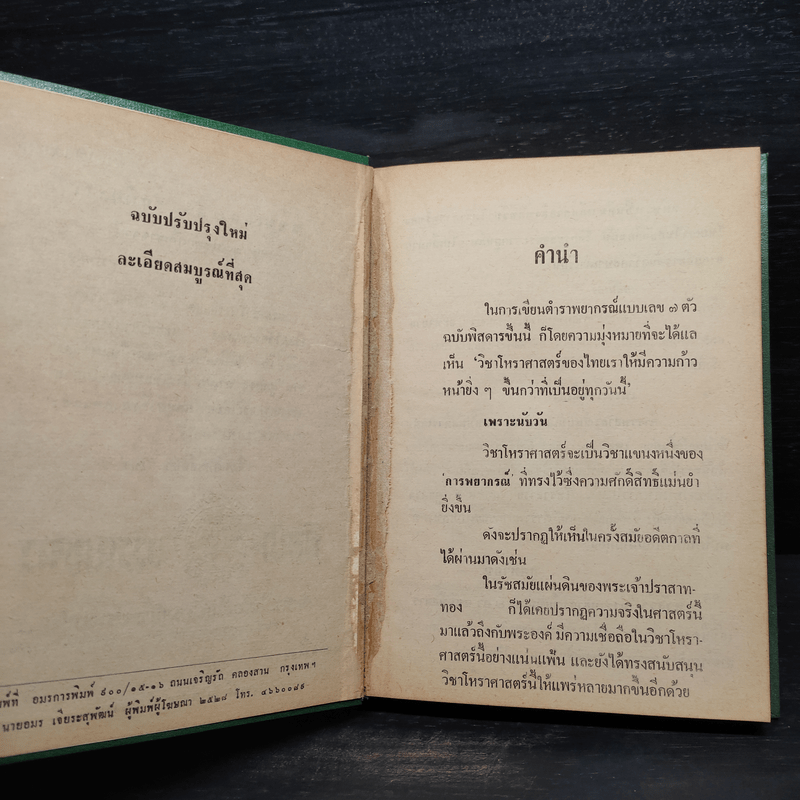 ฉบับปรับปรุงใหม่
ละเอียดสมบูรณ์ที่สุด
พ์ที่ อมรการพิมพ์ ๙๐๐/๑๕-๑๖ ถนนเจริญรัถ คลองสาน กรุงเทพฯ
นายอมร เจียระสุพัฒน์ ผู้พิมพ์ผู้โฆษณา ๒๕๒๘ โทร. ๔๖๖๐๐๘๙
คำนำ
ในการเขียนตำราพยากรณ์แบบเลข ๗ ตัว
ฉบับพิสดารขึ้นนี้ ก็โดยความมุ่งหมายที่จะได้แล
เห็น 'วิชาโหราศาสตร์ของไทยเราให้มีความก้าว
หน้ายิ่ง ๆ ขึ้นกว่าที่เป็นอยู่ทุกวันนี้'
เพราะนับวัน
วิชาโหราศาสตร์จะเป็นวิชาแขนงหนึ่งของ
'การพยากรณ์' ที่ทรงไว้ซึ่งความศักดิ์สิทธิ์แม่นยำ
ยิ่งขึ้น
ดังจะปรากฏให้เห็นในครั้งสมัยอดีตกาลที่
ได้ผ่านมาดังเช่น
ในรัชสมัยแผ่นดินของพระเจ้าปราสาท-
ทอง ก็ได้เคยปรากฏความจริงในศาสตร์นี้
มาแล้วถึงกับพระองค์ มีความเชื่อถือในวิชาโหรา-
ศาสตร์นี้อย่างแน่นแฟ้น และยังได้ทรงสนับสนุน
วิชาโหราศาสตร์นี้ให้แพร่หลายมากขึ้นอีกด้วย